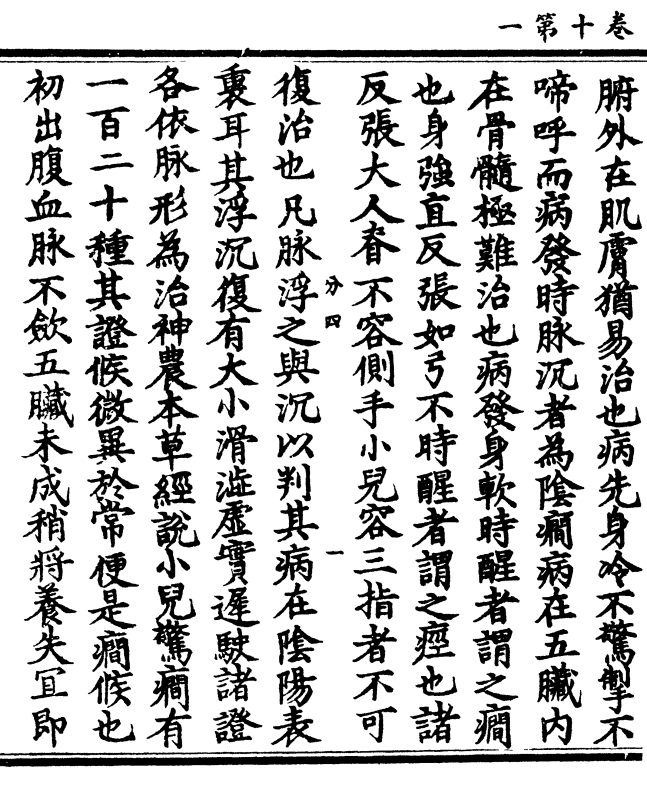 卷十第一
腑外在肌膚猶易治也病先身冷不驚掣不
啼呼而病發時脉沉者為陰癇病在五臟内
在骨髓極難治也病發身軟時醒者謂之癇
也身強直反張如弓不時醒者謂之痙也諸
反張大人脊不容側手小兒容三指者不可
復治也凡脉浮之與沉以判其病在陰陽表
裏耳其浮沉復有大小滑澁虛實遲駛諸證
各依脉形為治神農本草經說小兒驚癇有
一百二十種其證候微異於常便是癇候也
初出腹血脉不斂五臟未成稍將養失宜即
分四
一